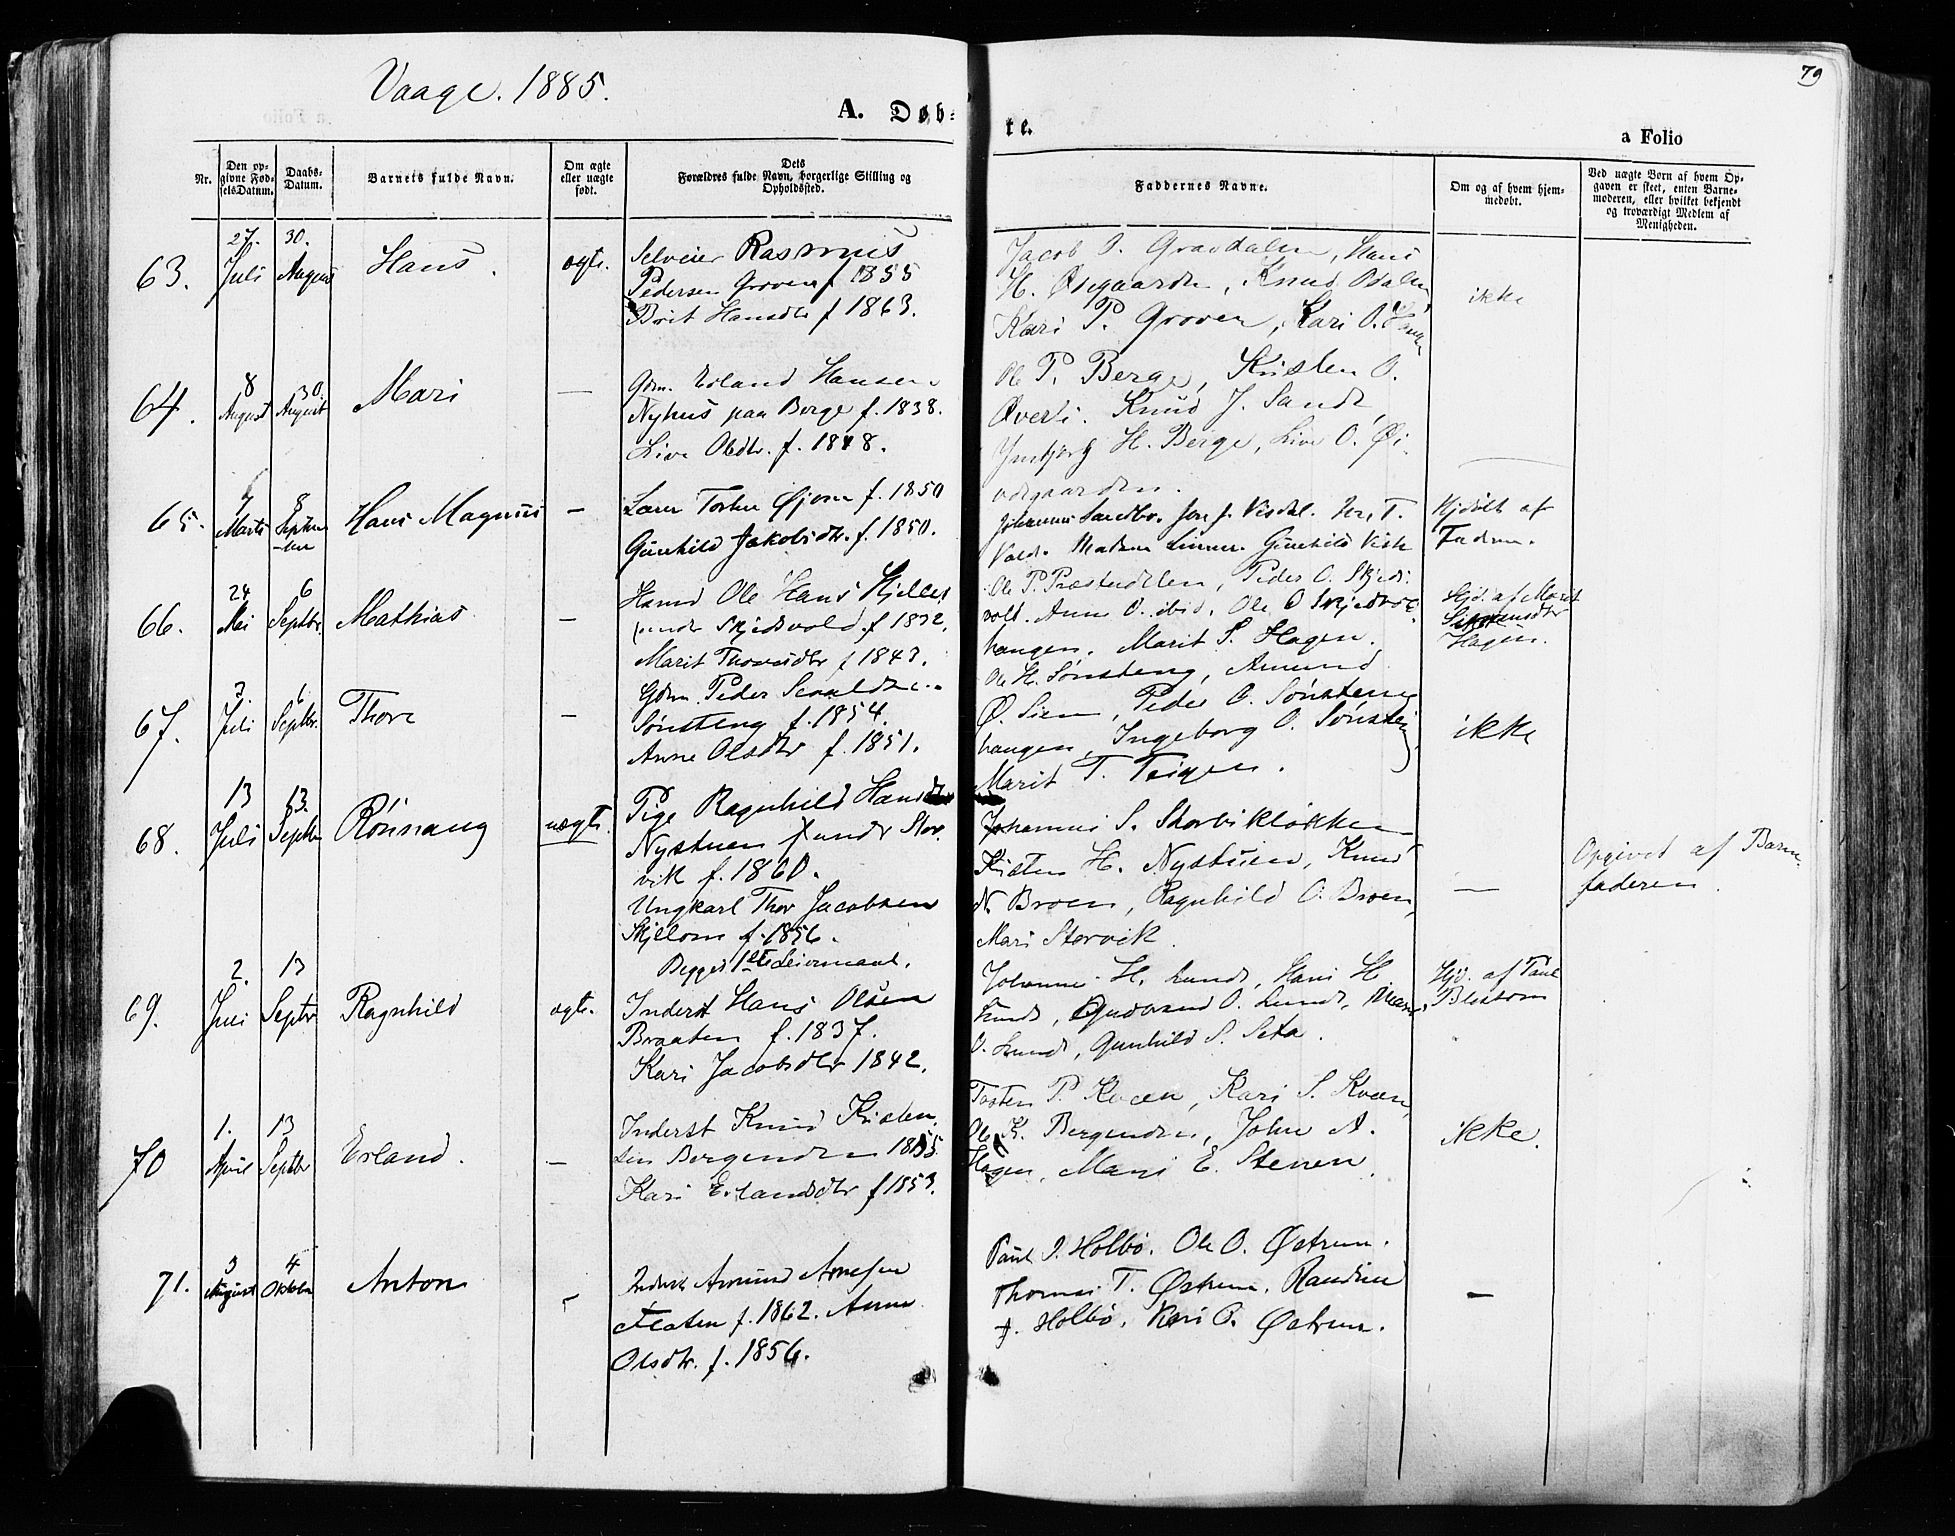 Vaage. 1885.
79
A. Døb-
te.
a Folio
Nr.
Den op-
givne Fød-
selsDatum.
Daabs-
Datum.
Barnets fulde Navn.
Om ægte
eller uægte
født.
Dets
Forældres fulde Navn, borgerlige Stilling og
Opholdssted.
Faddernes Navne.
Om og af hvem hjem-
medøbt.
Ved uægte Børn af hvem Op-
gaven er skeet, enten Barne-
moderen, eller hvilket bekjendt
og troværdigt Medlem af
Menigheden.
63.
27.
Juli
30.
August
Hans.
ægte.
Selveier Rasmus
Pedersen Groven f 1855
Brit Hansdtr f 1863.
Jacob O. Gravdalen, Hans
H. Øigaarden, Knud
Kari P. Groven, Kari O.
ikke
64.
8
August
30.
August
Mari
—
Gdm. Erland Hansen
Nyhus paa Berge f. 1838.
Live Olsdtr. f. 1848.
Ole P. Berge, Kristen O.
Øverli. Knud J. Sandt,
H. Berge, Live O. Øi-
—
65.
7
Marts
8
Septem-
ber
Hans Magnus
—
Øjom f. 1850
Gunhild Jakobsdtr. f. 1850.
Johannes Sandbo. Jon J. Visdal. T.
Gunhild
Hjdøbt af
Faderen.
66.
24
Mai
6
Septbr.
Mathias
—
Ole Hans
under Skjedsvold f 1832.
Marit f 1843.
Ole P. Præstudelen, Peder O. Skjeds-
vold. Ann O. ibid. Ole O
haugen, Marit S. Hagen.
Hjd. af Marit
Hagen.
67.
3.
Juli
6
Septbr.
Thore
—
Gdm. Peder
Sønsteng f. 1854.
Anne Olsdtr f. 1851.
Ole H. Sønsteng, Amund
Ø. Siem, Peder O. Sønsteng
haugen, Ingeborg O.
Marit T. Teigen.
ikke
68.
13
Juli
13.
Septbr
Rönnaug
uægte.
Pige Ragnhild Hansdtr
Nystuen under Stor-
vik f. 1860.
Ungkarl Thor Jacobsen
Skjellom f. 1856.
Begges 1ste Leiermaal.
Johannes S. Storvikløkken
Kristen H. Nystuen, Knud
N. Broen, Ragnhild O. Broen,
Mari Storvik.
—
Opgivet af Barne-
faderen.
69.
2.
Juli
13
Septbr
Ragnhild
ægte.
Inderst Hans Olsen
Braaten f. 1837.
Kari Jacobsdtr 1842.
Johanne H. Lunde, Hans H
Lunde, Gudvand O. Lunde,
O. Lunde, Gunhild S. Seta.
Hjd. af Paul
Blessom
70
1.
April
13
Septbr
Erland.
—
Inderst Knud Kristen-
sen Bergenden 1855.
Kari Erlandsdtr f 1853.
Tosten P. Kvæen, Kari S. Kvæen,
Ole K. Bergenden, John A.
Hagen, Mari E. Stenen.
ikke.
71.
3
August
4
Oktober
Anton
Inderst Amund Arnesen
Flaten f. 1862. Anne
Olsdtr. f. 1856.
Paul J. Holbø. Ole O. Øxtrem.
Thomas T. Øxtrem.
J. Holbø. Kari O. Øxtrem.
—